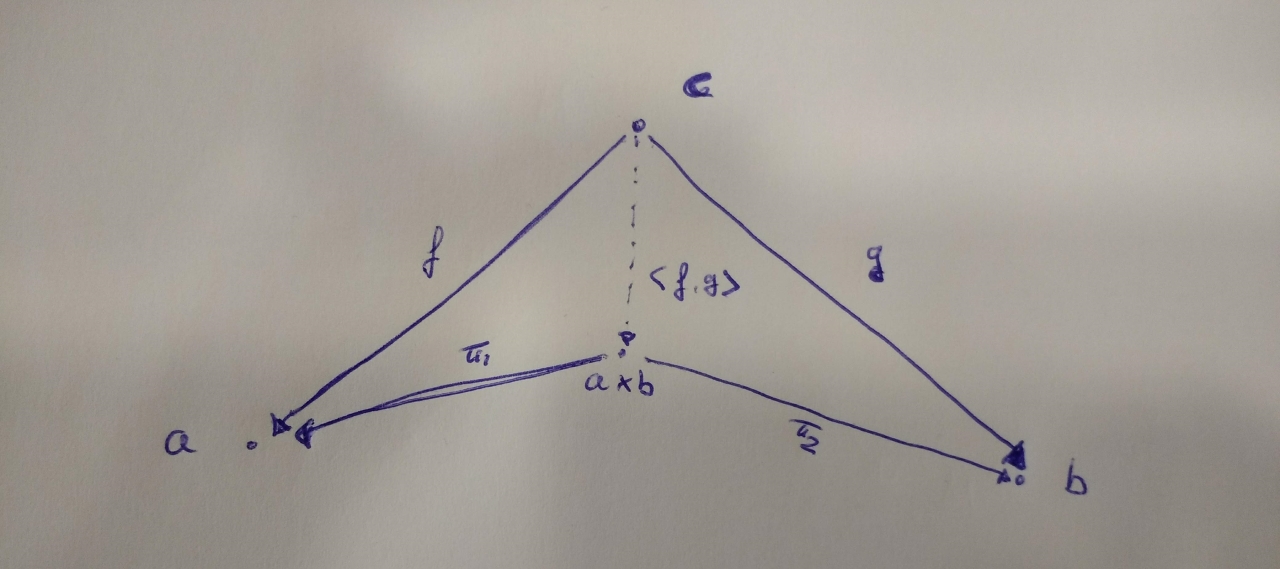 c
f
g
<f,g>
π₁
a × b
π₂
a
b